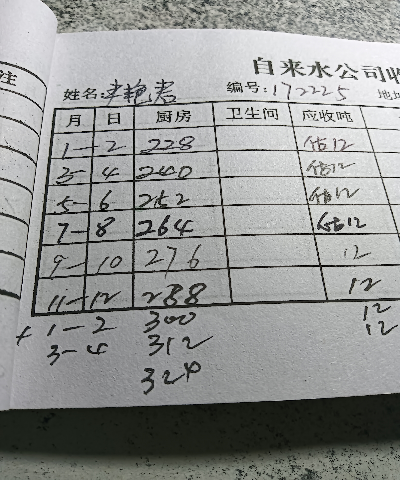 自来水公司收
注
姓名: 李艳君 编号: 172225 地址
月 日 厨房 卫生间 应收吨
1-2 228 估12
3-4 240 估12
5-6 252 估12
7-8 264 估12
9-10 276 12
11-12 288 12
+ 1-2 300 12
3-4 312 12
324